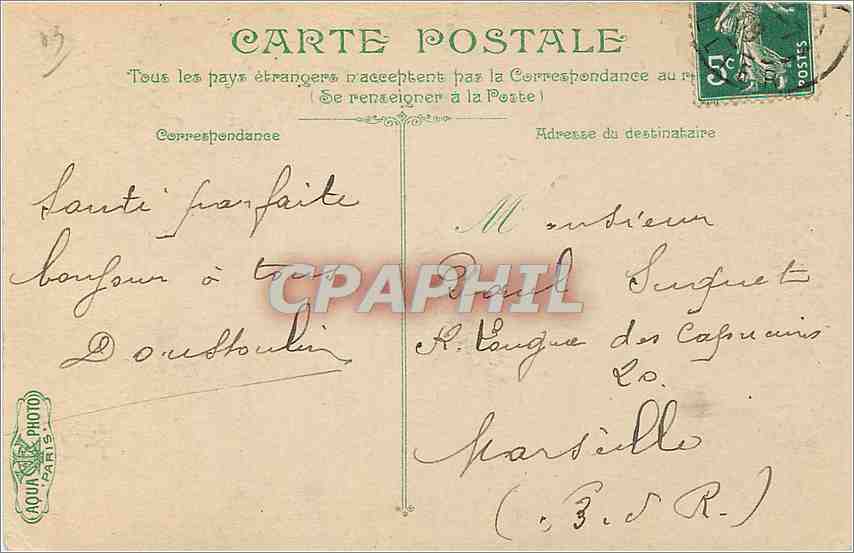 13
CARTE POSTALE
Tous les pays étrangers n'acceptent pas la Correspondance au r
(Se renseigner à la Poste)
5c
POSTES
Correspondance
Adresse du destinataire
Santé parfaite
bonjour à tous
Doustoulin
Monsieur
Paul Suquet
R. Longue des Capucins
20.
Marseille
(B. d R.)
CPAPHIL
AQUA PHOTO
PARIS